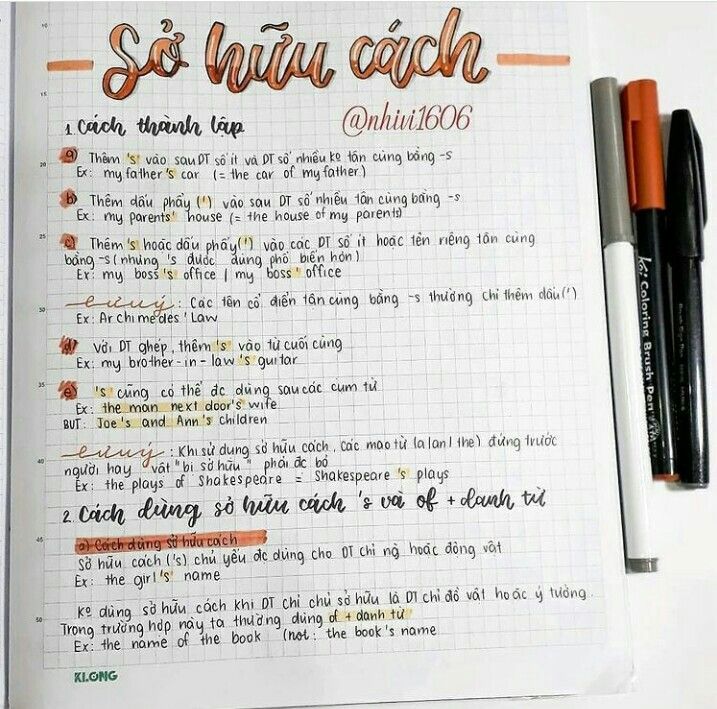 Sở hữu cách
1. Cách thành lập
@nhivi1606
a) Thêm 's vào sau DT số ít và DT số nhiều ko tận cùng bằng -s
Ex: my father's car (= the car of my father)
b) Thêm dấu phẩy (') vào sau DT số nhiều tận cùng bằng -s
Ex: my parents' house (= the house of my parents)
c) Thêm 's hoặc dấu phẩy(') vào các DT số ít hoặc tên riêng tận cùng
bằng -s (nhưng 's được dùng phổ biến hơn)
Ex: my boss's office / my boss' office
Lưu ý: Các tên cổ điển tận cùng bằng -s thường chỉ thêm dấu(')
Ex: Archimedes' Law
d) Với DT ghép, thêm 's vào từ cuối cùng
Ex: my brother-in-law's guitar
e) 's cũng có thể đc dùng sau các cụm từ
Ex: the man next door's wife
BUT: Joe's and Ann's children
Lưu ý: Khi sử dụng sở hữu cách, các mạo từ (a/an/the) đứng trước
người hay vật "bị sở hữu" phải đc bỏ
Ex: the plays of Shakespeare = Shakespeare's plays
2. Cách dùng sở hữu cách 's và of + danh từ
a) Cách dùng sở hữu cách
Sở hữu cách ('s) chủ yếu đc dùng cho DT chỉ ng hoặc động vật
Ex: the girl's name
Ko dùng sở hữu cách khi DT chỉ chủ sở hữu là DT chỉ đồ vật hoặc ý tưởng.
Trong trường hợp này ta thường dùng of + danh từ
Ex: the name of the book (not: the book's name
KLONG
Koi Coloring Brush Pen